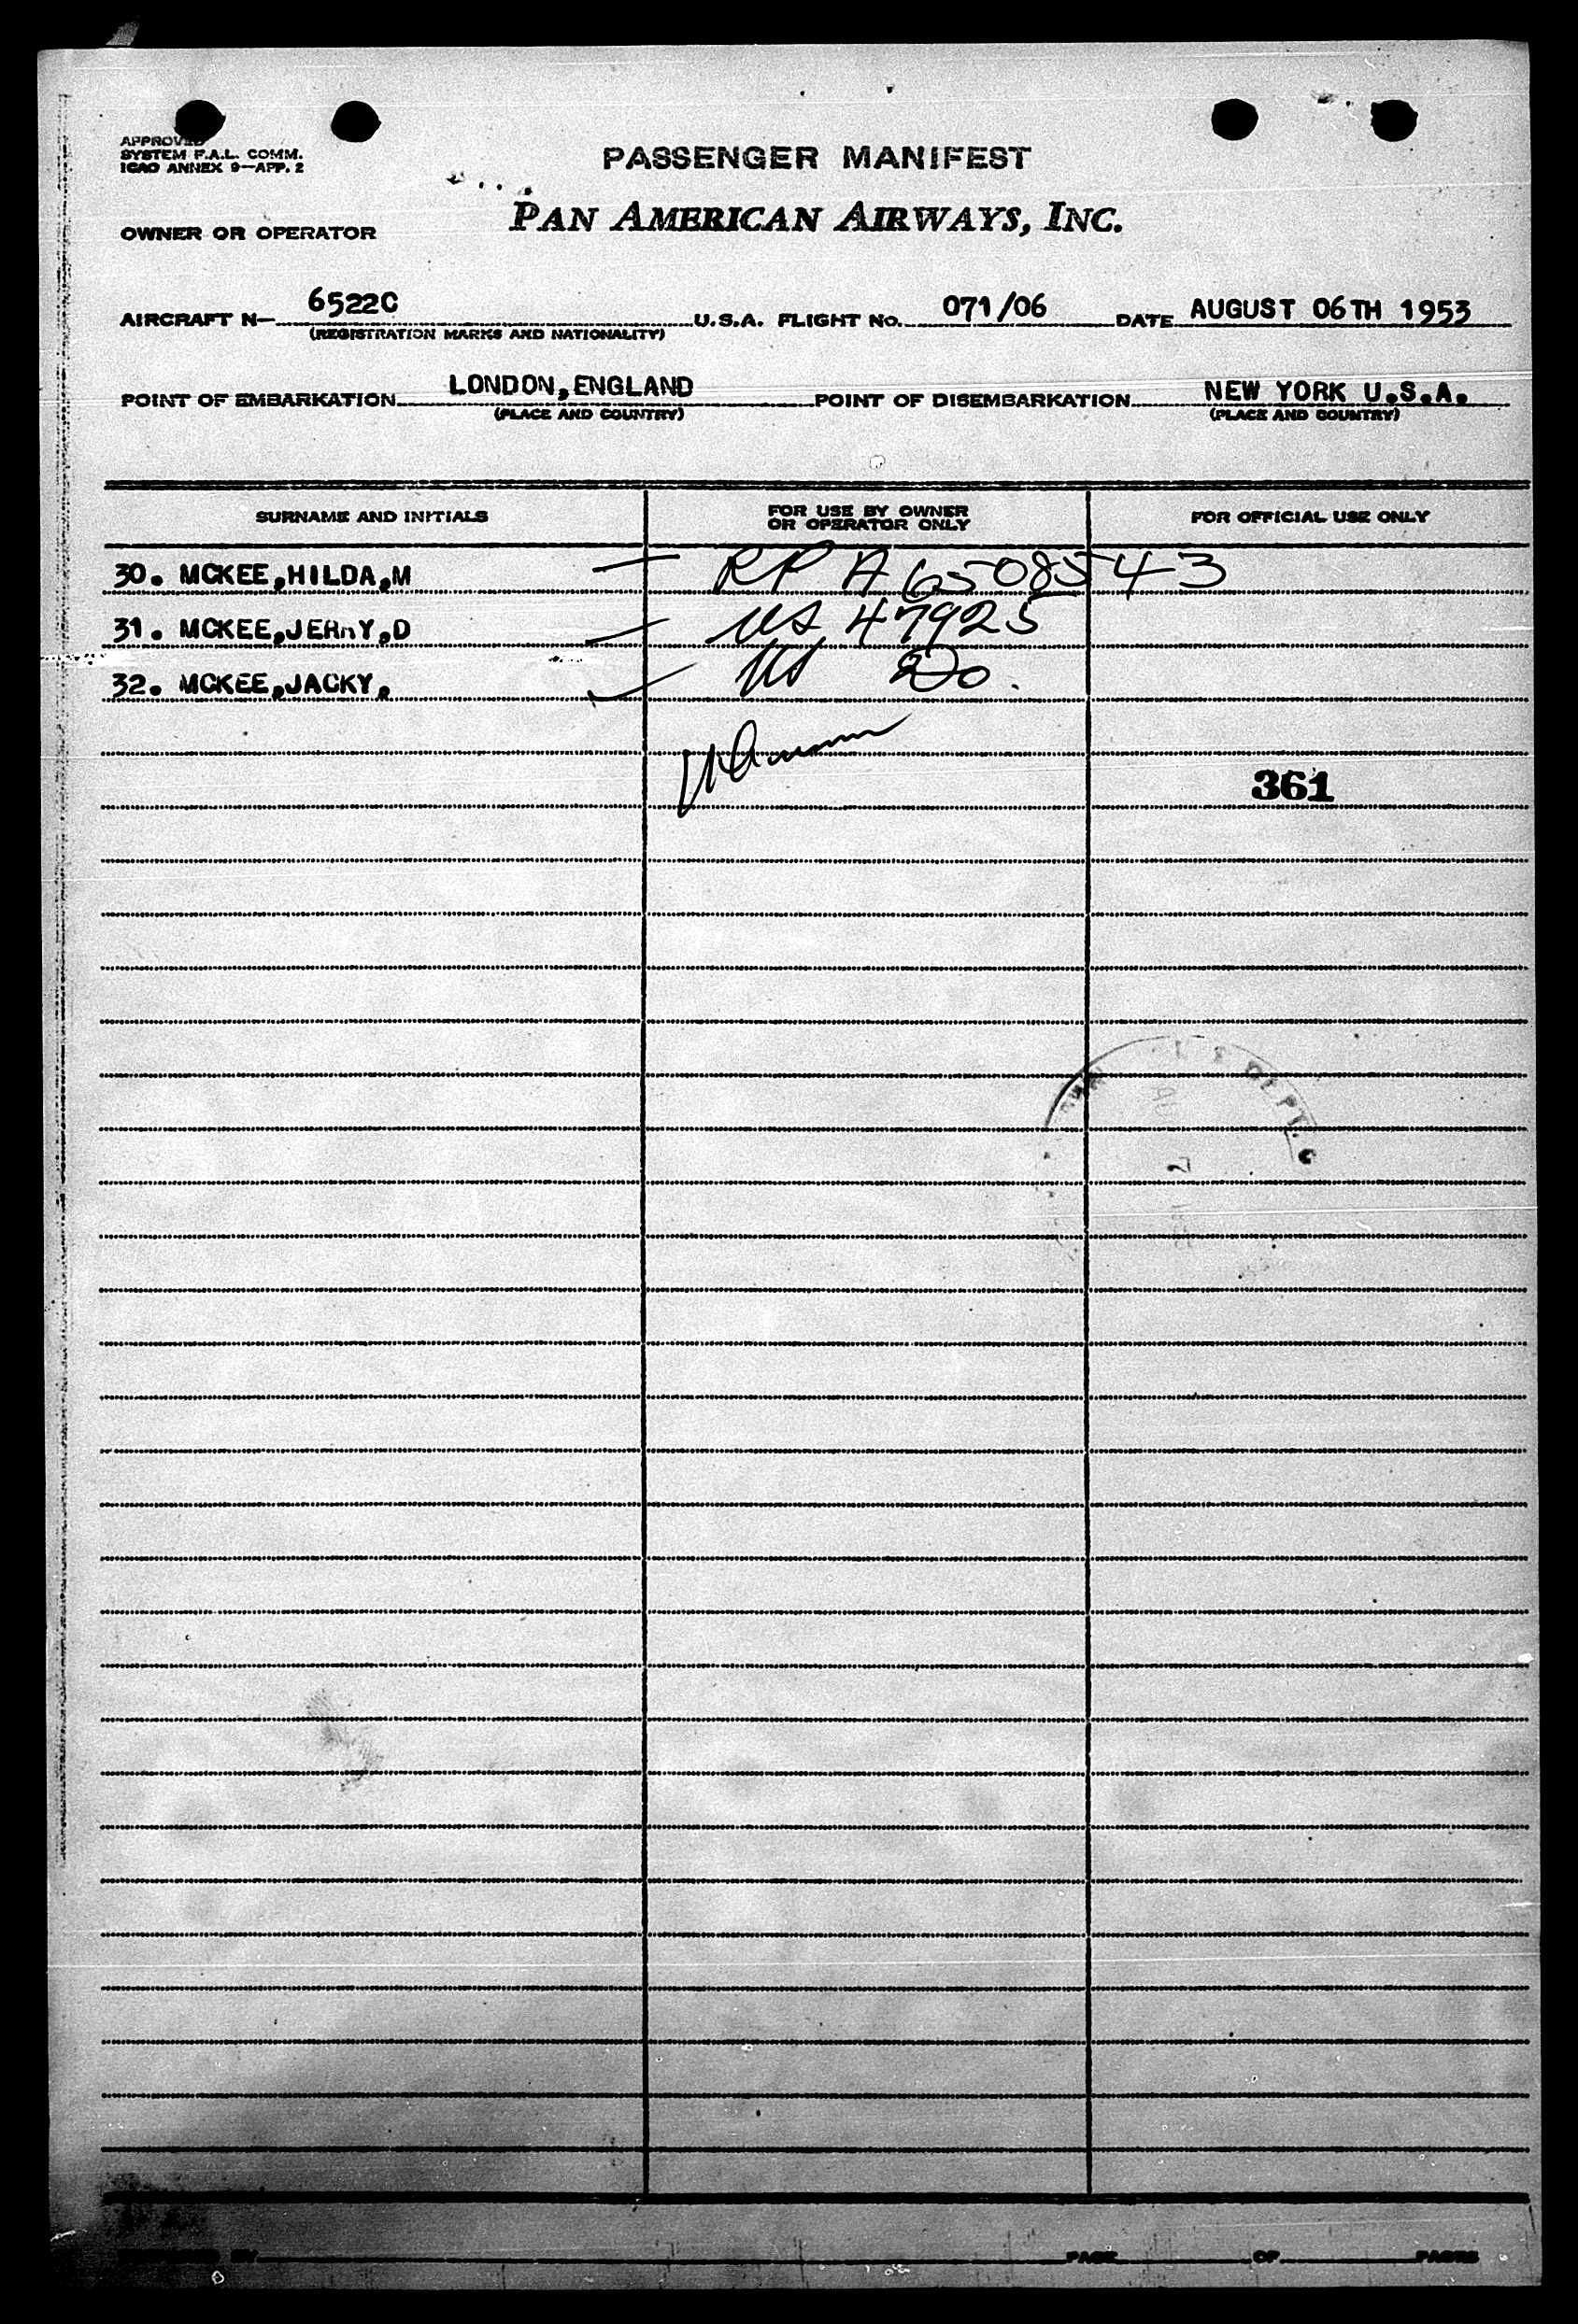 APPROVED
SYSTEM F.A.L. COMM.
ICAO ANNEX 9—APP. 2
PASSENGER MANIFEST
OWNER OR OPERATOR PAN AMERICAN AIRWAYS, INC.
AIRCRAFT N— 6522C U.S.A. FLIGHT No. 071/06 DATE AUGUST 06TH 1953
(REGISTRATION MARKS AND NATIONALITY)
POINT OF EMBARKATION LONDON,ENGLAND POINT OF DISEMBARKATION NEW YORK U.S.A.
(PLACE AND COUNTRY) (PLACE AND COUNTRY)
SURNAME AND INITIALS FOR USE BY OWNER OR OPERATOR ONLY FOR OFFICIAL USE ONLY
30. MCKEE,HILDA,M RP A 6508543
31. MCKEE,JERRY,D US 47925
32. MCKEE,JACKY, US Do.
361
DEPT.
PAGE OF PAGES